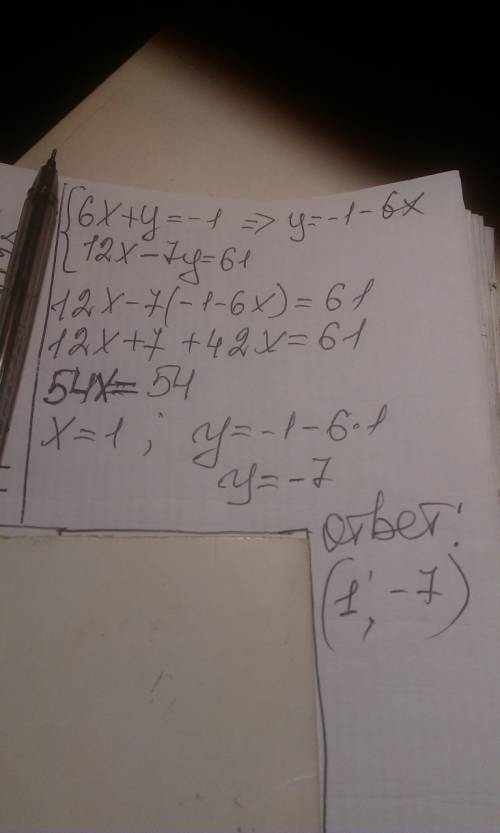 {6x+y=-1 => y=-1-6x
12x-7y=61
12x-7(-1-6x)=61
12x+7+42x=61
54x=54
x=1; y=-1-6·1
y=-7
ответ:
(1; -7)